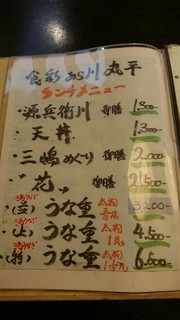 食彩 あら川 丸平
ランチメニュー
・源兵衛川 御膳 1,300
・天丼 1,300
・三嶋めぐり 御膳 2,000
・〃花〃 御膳 2,500
・(並) うな重 3,200
・(上) うな重 4,500
・(特) うな重 6,500